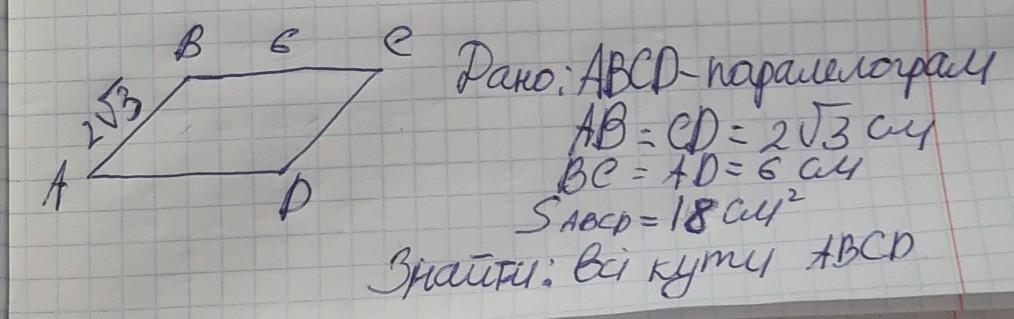 B 6 C
2√3
A D
Дано: ABCD - паралелограм
AB = CD = 2√3 см
BC = AD = 6 см
S ABCD = 18 см²
Знайти: всі кути ABCD